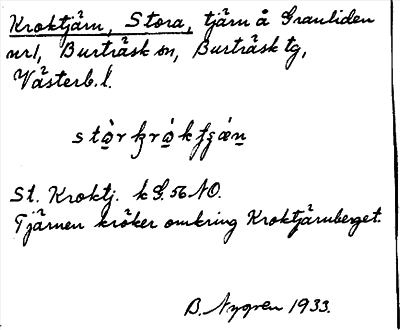 Kroktjärn, Stora, tjärn å Granliden
nr1, Burträsk sn, Burträsk tg,
Västerb. l.
St. Kroktj. k G.56 NO.
Tjärnen kröker omkring Kroktjärnberget.
B. Nygren 1933.